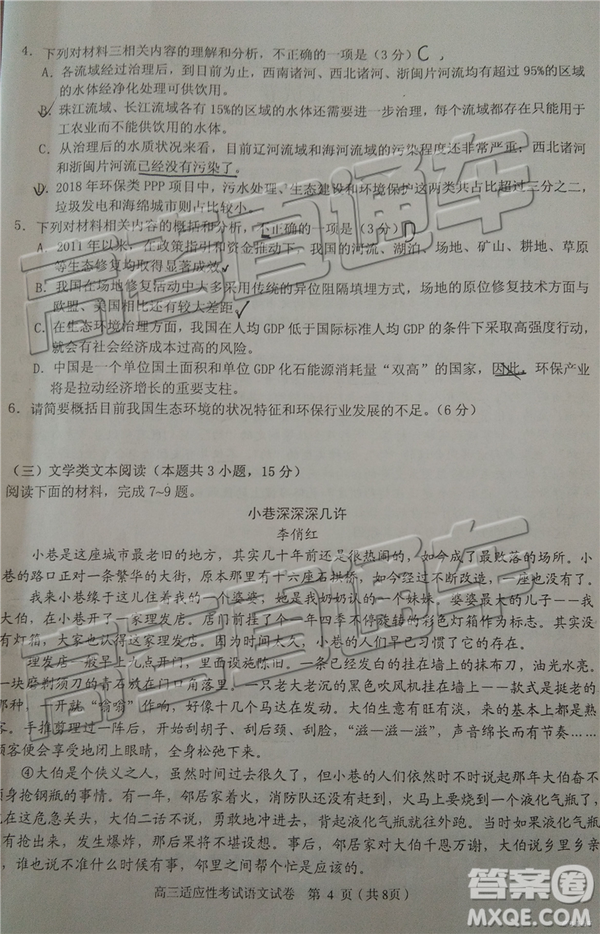 4. 下列对材料三相关内容的理解和分析，不正确的一项是（3分）C
A. 各流域经过治理后，到目前为止，西南诸河、西北诸河、浙闽片河流域已经有超过95%的区域
的水体经净化处理可供饮用。
B. 珠江流域、长江流域各有15%的区域的水体还需要进一步治理，每个流域都存在只能用于
工农业而不能供饮用的水体。
C. 从治理后的水质状况来看，目前辽河流域和海河流域的污染程度还非常严重；西北诸河
和浙闽片河流已经没有污染了。
D. 2018年环保类PPP项目中，污水处理、生态建设和环境保护这两类共占比超过三分之二，
垃圾发电和海绵城市则占比较小。
5. 下列对材料相关内容的概括和分析，不正确的一项是（3分）D
A. 2011年以来，在政策指引和资金推动下，我国的河流、湖泊、场地、矿山、耕地、草原
等生态修复均取得显著成效。
B. 我国的场地修复活动中大多采用传统的异位阻隔填埋方式，场地的原位修复技术方面与
欧盟、美国相比还有较大差距。
C. 在生态环境治理方面，我国在人均GDP低于国际标准人均GDP的条件下采取高强度行动，
就会有社会经济成本过高的风险。
D. 中国是一个单位国土面积和单位GDP化石能源消耗量“双高”的国家，因此，环保产业
将是拉动经济增长的重要支柱。
6. 请简要概括目前我国生态环境的状况特征和环保行业发展的不足。（6分）
（三）文学类文本阅读（本题共3小题，15分）
阅读下面的材料，完成7~9题。
小巷深深深几许
李俏红
小巷是这座城市最老旧的地方，其实几十年前还是很热闹的，如今成了最败落的场所。小
巷的路口正对一条繁华的大街，原本那里有十六座石拱桥，如今经过不断改造，一座也没有了。
我来小巷缘于这儿住着我的一个婆婆，她是我奶奶认的一个妹妹，婆婆最大的儿子——我
大伯，在小巷里开了一家理发店。店门前挂了一个一年四季不停旋转的彩色灯箱作为标志。其实没
有灯箱，大家也认得这家理发店。因为时间太久，小巷的人们早已习惯了它的存在。
理发店一般早上九点开门，里面设施陈旧。一条已经发白的挂在墙上的抹布刀，油光水亮。
一块磨剃须刀的青石放在门口角落里。一只老大老沉的黑色吹风机挂在墙上——款式是挺老的
那种，一开就“嗡嗡”作响，好像里面有几十个马达在发动。大伯生意有旺有淡，来的大都是老顾
客。手推剪理过大样之后，大伯便用剃刀刮胡子、刮后颈、刮脸，“滋—滋—滋”，声音绵长厚实……
顾客便会享受地闭上眼睛，全身松弛下来。
④大伯是个侠义之人，虽然时间一日日过去，但小巷的人们依然时不时说起那年大伯奋不
顾身抢钢瓶的事情。有一年，邻居家着火，消防队还没有赶到，火马上要烧到一个液化气瓶了，
就在这危急关头，大伯二话不说，勇敢地冲进去，背起液化气瓶就往外跑。当时如果液化气瓶
没有抢出来，发生爆炸，那后果将不堪设想。事后，邻居家对大伯千恩万谢，大伯说大家邻居
，谁也说不准什么时候有事，到时帮忙总是应该的。
高三适应性考试语文试卷 第 4 页（共8页）
高考直通车
作业精灵